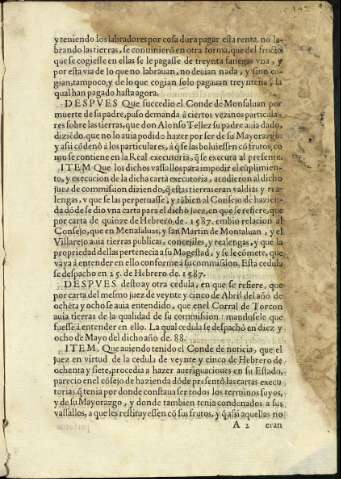 y teniendo los labradores por cosa dura pagar esta renta. no la-
brando las tierras, se conuinierõ en otra forma, que del fructo
que se cogiesse en ellas se le pagasse de treynta fanegas vna, y
por esta via de lo que no labrauan, no deuian nada, y si no co-
gian, tampoco, y de lo que cogian solo pagauan treyntena, la
qual han pagado hasta agora.
DESPVES Que succedio el Conde de Montaluan por
muerte de su padre, puso demanda à ciertos vezinos particula-
res sobre las tierras, que don Alonso Tellez su padre auia dado,
diziẽdo, que no lo auia podido hazer por ser de su Mayorazgo
y assi cõdenó a los particulares, à q̃ se las boluiessen cõ frutos, co
mo se contiene en la Real executoria, q̃ se executa al presente.
ITEM Que los dichos vassallos para impedir el cũplimien-
to, y execucion de la dicha carta executoria, acudieron al dicho
juez de commission diziendo, q̃ estas tierras eran valdias y rea-
lengas, y que se las perpetuasse, y tãbien al Consejo de hazien-
da dõde se dio vna carta para el dicho juez, en que se refiere, que
por carta de quinze de Hebrero de. 1587. embio relacion al
Consejo, que en Menasaluas, y san Martin de Montaluan, y el
Villarejo auia tierras publicas, concejiles, y realengas, y que la
propriedad dellas pertenecia a su Magestad, y se le comete, que
vaya à entender en ello conforme à su commission. Esta cedula
se despacho en 25. de Hebrero de. 1587.
DESPVES desto ay otra cedula, en que se refiere, que
por carta del mismo juez de veynte y cinco de Abril del año de
ochẽta y ocho se auia entendido, que en el Corral de Torcon
auia tierras de la qualidad de su commission: mandosele que
fuesse à entender en ello. La qual cedula se despachó en diez y
ocho de Mayo del dicho año de. 88.
ITEM. Que auiendo tenido el Conde de noticia, que el
juez en virtud de la cedula de veynte y cinco de Hebrero de
ochenta y siete, procedia a hazer aueriguaciones en su Estado,
parecio en el cõsejo de hazienda dõde presentó las cartas execu
torias, q̃ tenia por donde constaua ser todos los terminos suyos,
y de su Mayorazgo, y donde tambien tenia condenados a sus
vassallos, a que les restituyessen cõ sus frutos, y q̃ assi aquellas no
A 2 eran